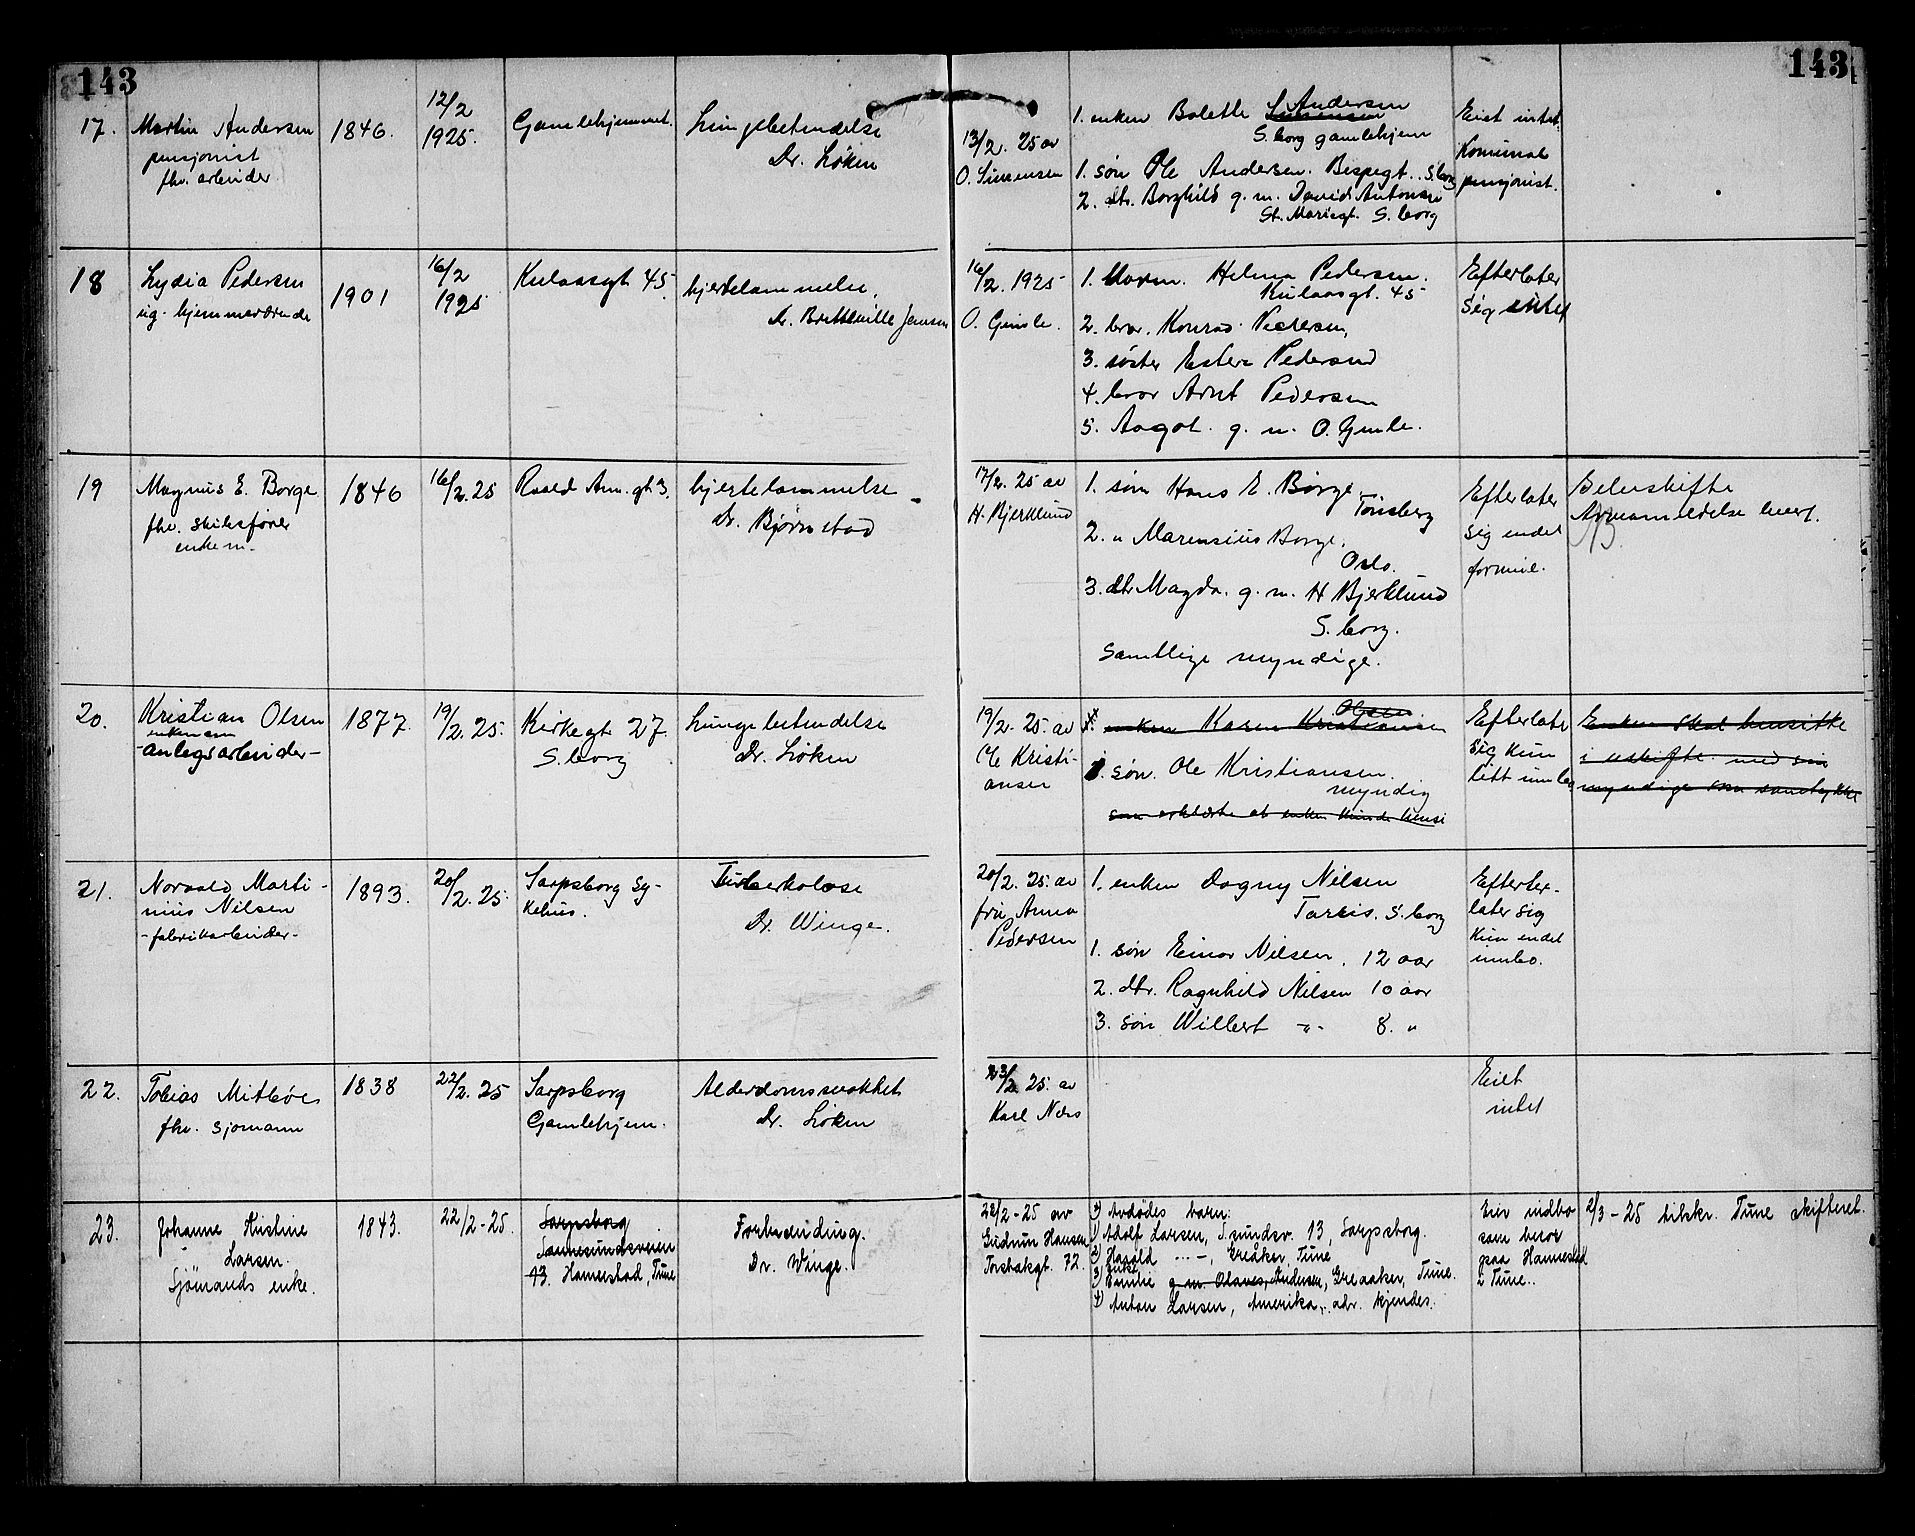 143
143
17.
Martin Andersen
pensjonist
fhv. arbeider
1846.
12/2
1925.
Gamlehjemmet.
Lungebetendelse
Dr. Løken
13/2. 25 av
O. Simensen
1. enken Bolette Simensen Andersen
S.borg gamlehjem
1. søn Ole Andersen. Bispegt. S.borg
2. dtr. Borghild g. m. David Antonsen
St. Mariegt. S.borg
Eiet intet.
Komunal
pensjonist.
18
Lydia Pedersen
ug. hjemmeværende
1901
16/2
1925
Kulaasgt 45.
hjertelammelse,
Dr. Bretteville Jensen
16/2. 1925
O. Gimle.
1. Moren. Helma Pedersen.
Kulaasgt. 45
2. bror. Konrad Pedersen,
3. søster Ester Pedersen
4. bror Arnt Pedersen
5. Aagot. g. m. O. Gimle.
Efterlater
sig intet
19
Magnus E. Borge
fhv. skibsfører
enkem.
1846
16/2. 25
Roald Am. gt. 3.
hjertelammelse
Dr. Bjørnstad
17/2. 25 av
H. Bjerklund
1. søn Hans E. Borge,
Tønsberg
2. " Marensius Borge,
Oslo.
3. dtr Magda. g. m. H Bjerklund
S.borg.
samtlige myndige.
Efterlater
sig endel
formue.
Arveanmeldelse levert.
20.
Kristian Olsen
enkemann
-anlegsarbeider-
1877.
19/2. 25.
Kirkegt 27
S.borg
Lungebetendelse
Dr. Løken
19/2. 25. av
Ole Kristi-
ansen
enken Karen Kristiansen Olsen
1. søn. Ole Kristiansen.
myndig
som erklærte at enken kunde hensi
Efterlate
sig kun
litt innbo
Enken skal hensitte
i uskifte med sin
myndige søns samtykke
21.
Norvald Marti-
nius Nilsen
-fabrikarbeider-
1893.
20/2. 25.
Sarpsborg Sy-
kehus.
Tuberkolose
Dr. Winge.
20/2. 25. av
fru Anna
Pedersen
1. enken Dagny Nilsen
Tarris. S.borg
1. søn Einar Nilsen, 12 aar
2. dtr. Ragnhild Nilsen 10 aar
3. søn Willert -"- 8. "
Efterlater
sig
kun endel
innbo.
22.
Tobias Mitbøe
fhv. sjømann
1838
22/2. 25
Sarpsborg
Gamlehjem.
Alderdomssvakhet
Dr. Løken
23/2 25. av
Karl Næs
Eiet
intet
23.
Johanne Kristine
Larsen.
Sjömands enke.
1843.
22/2-25.
Sarpsborg
Sannesundsveien
13. Hannestad, Tune
Forbrænding.
Dr. Winge.
22/2-25 av
Gudrun Hansen
Torsbakgt. 72.
Avdødes barn:
1) Adolf Larsen, S.sundsv. 13, Sarpsborg.
2) Harald -"-, Greåker, Tune
enke
3) Emilie g. m. Olaves, Andersen, Greaaker, Tune.
4) Anton Larsen, Amerika, adr. kjendes.
Eier indbo
som beror
paa Hannestad
i Tune..
2/3-25 tilskr. Tune skifteret.